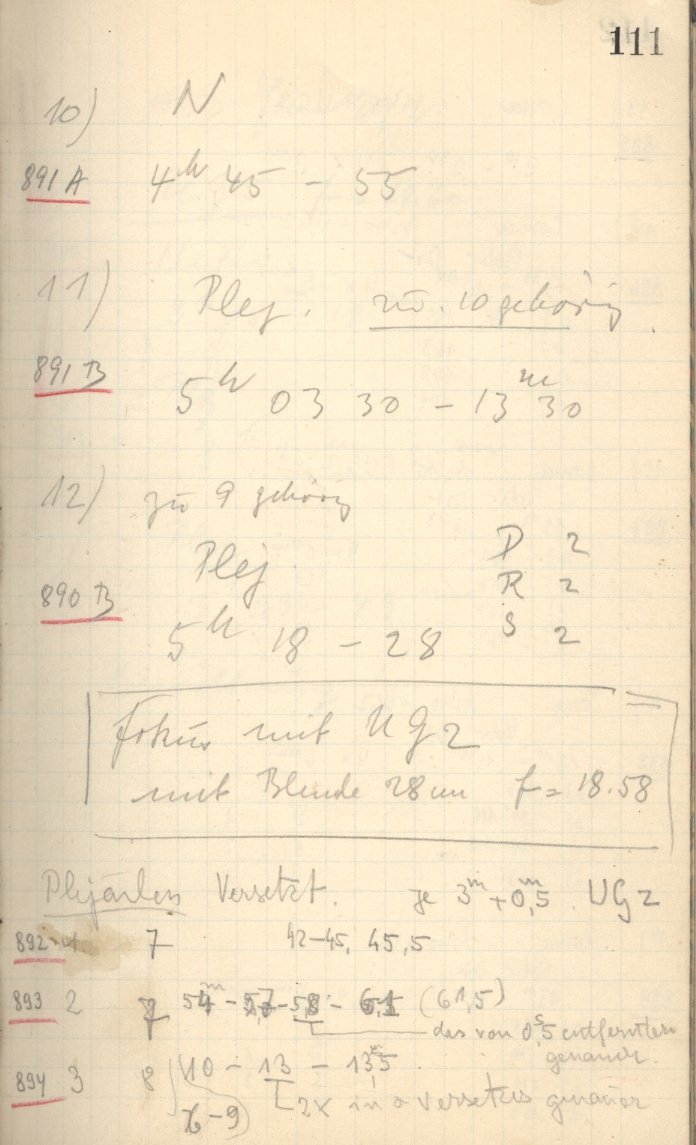 111
10) N
891 A 4h 45 - 55
11) Plej. zu. 10 gehörig.
891 B 5h 03 30 - 13m 30
12) zu 9 gehörig
Plej. P 2
R 2
890 B S 2
5h 18 - 28
Fokus mit UG 2
mit Blende 28 cm f = 18.58
Plejaden Versetzt. je 3m + 0,5m UG 2
892 1 7 42-45, 45,5
893 2 7 54m - 57 - 58 - 61 (61,5)
das von 0,5 entfernten
genauer.
894 3 8 10 - 13 - 13,5
2x in versetzt genauer
- 9)